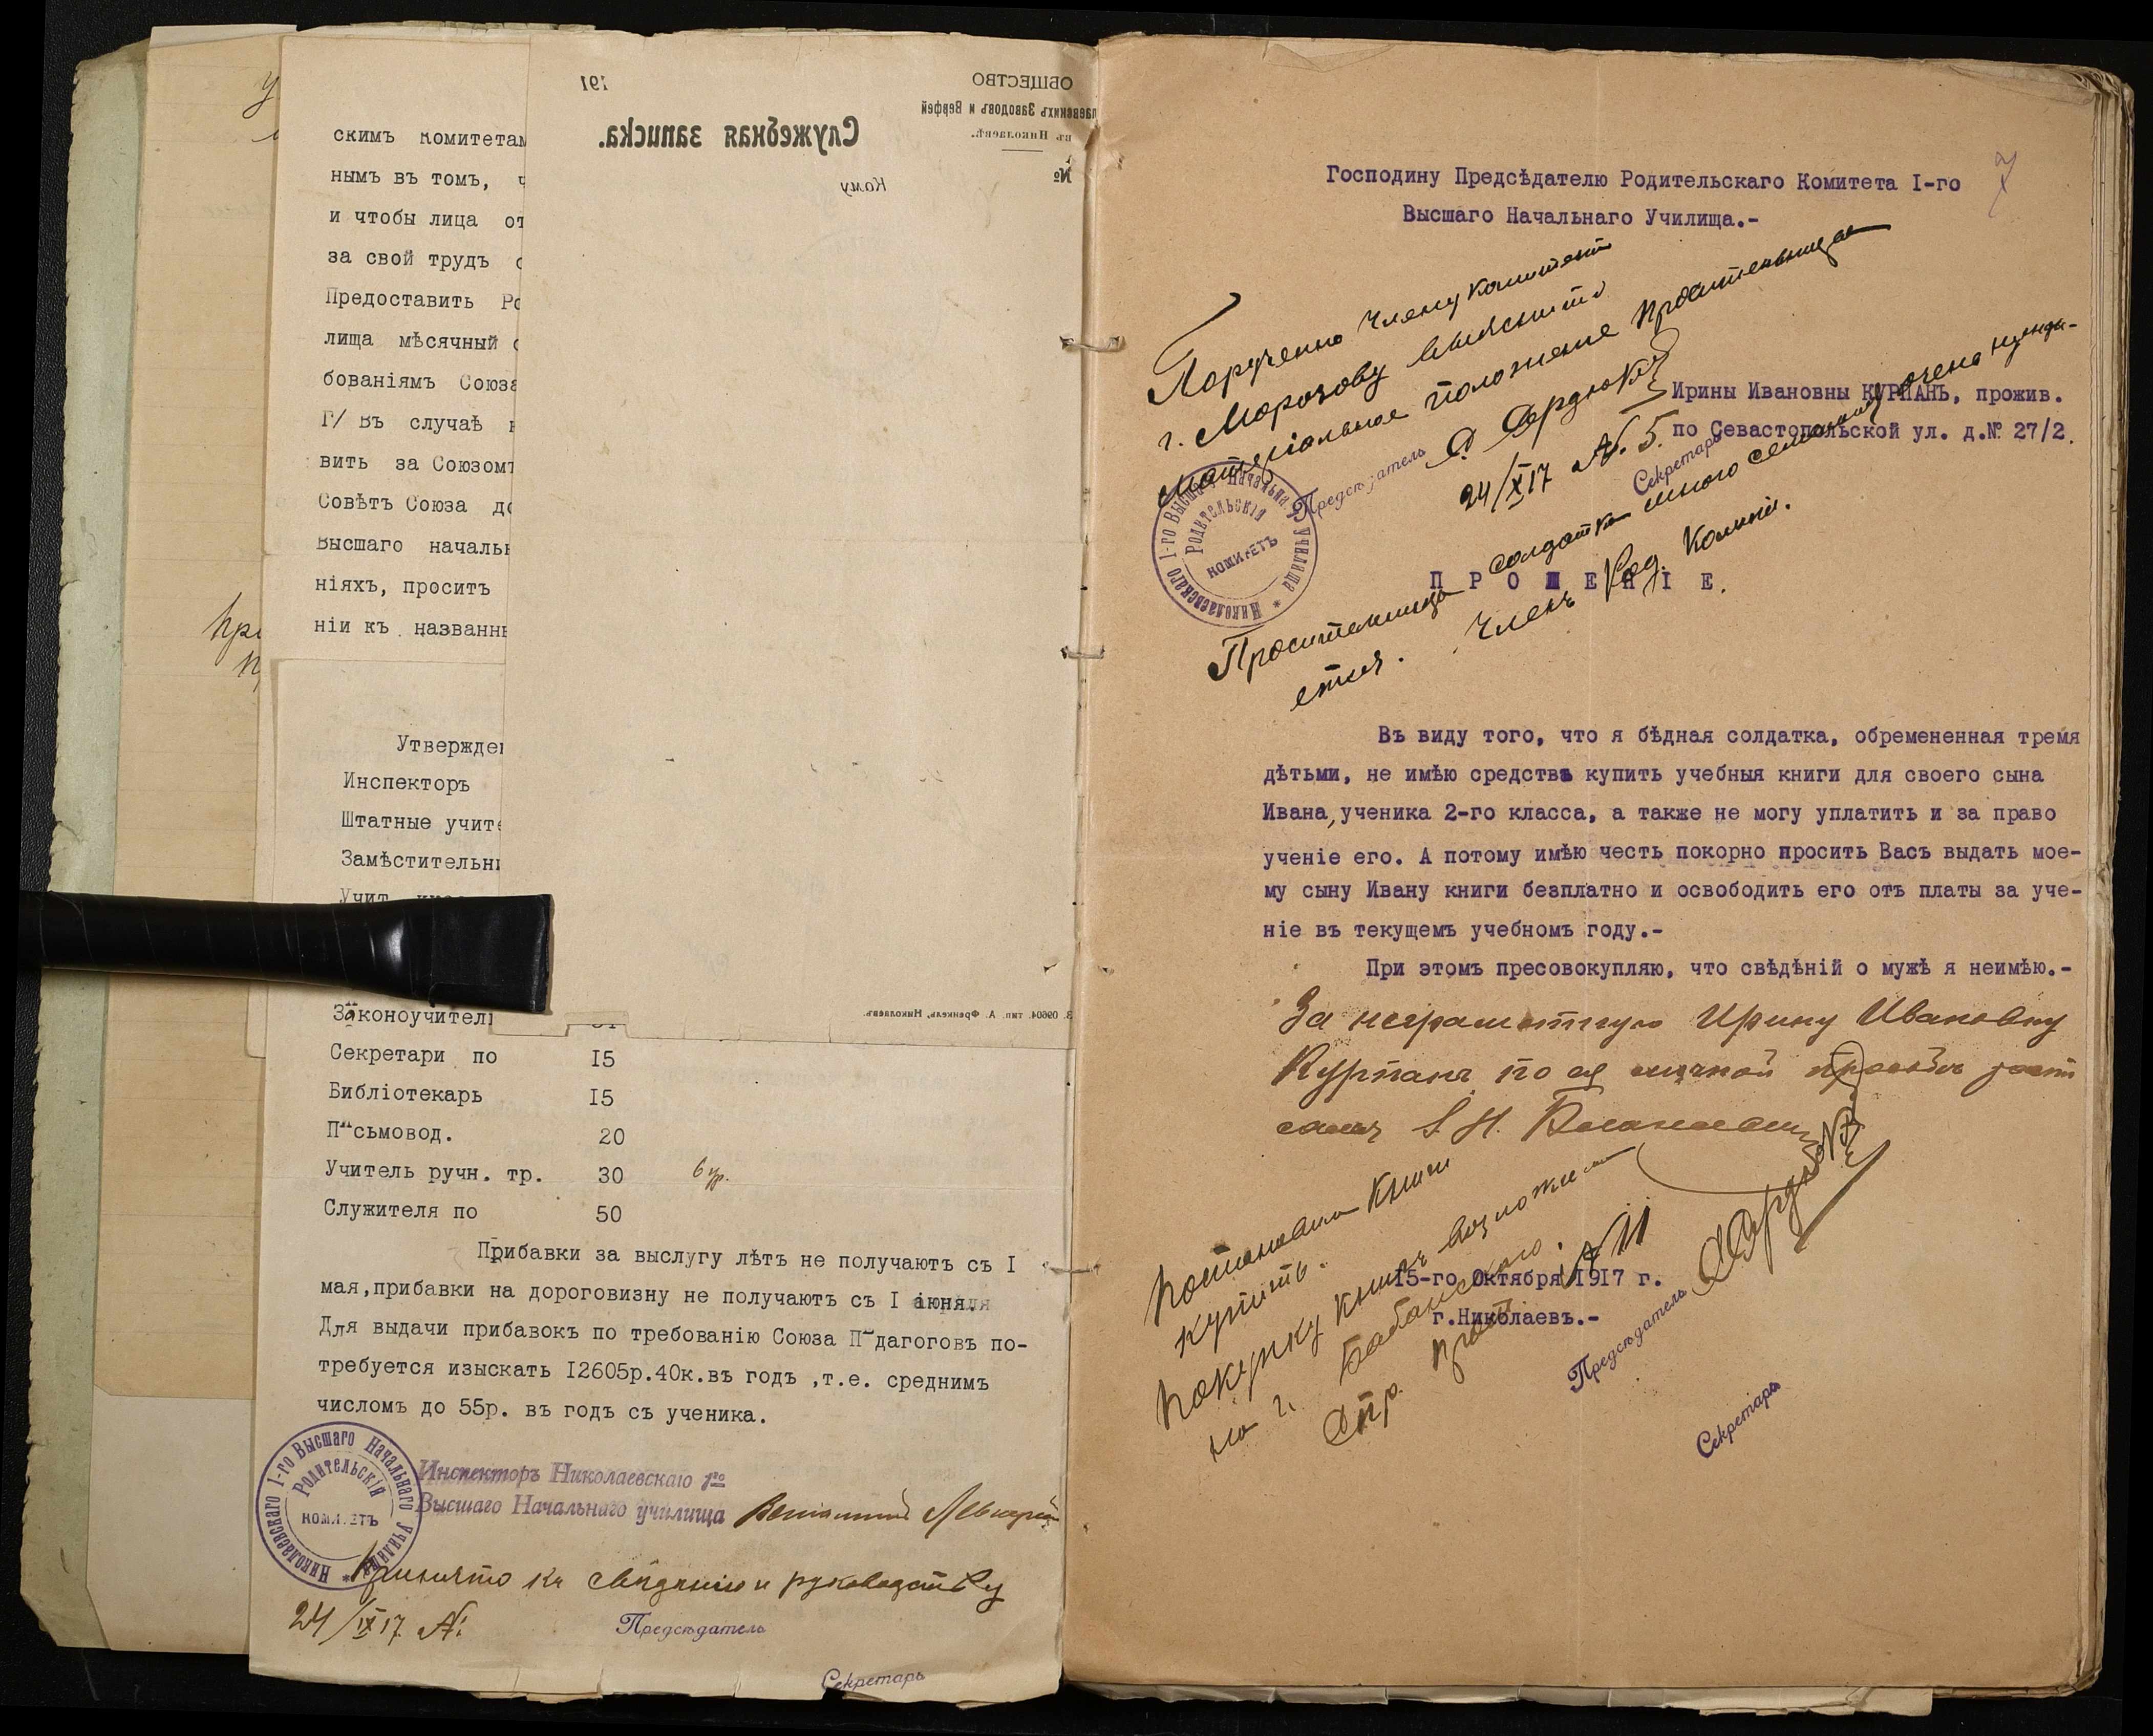 скимъ комитетам
нымъ въ томъ, ч
и чтобы лица от
за свой трудъ
Предоставить Ро
лища мѣсячный
бованіямъ Союза
Г/ Въ случаѣ
вить за Союзомъ
Совѣтъ Союза до
Высшаго начальн
ніяхъ, просить
ніи къ названн
Утвержден
Инспекторъ
Штатные учите
Замѣстительн
Учит.
Законоучител
Секретари по 15
Библіотекарь 15
Письмовод. 20
Учитель ручн. тр. 30 6 ур.
Служителя по 50
Прибавки за выслугу лѣтъ не получаютъ съ I
мая,прибавки на дороговизну не получаютъ съ I іюня
Для выдачи прибавокъ по требованію Союза Педагоговъ по-
требуется изыскать I2605р.40к.въ годъ ,т.е. среднимъ
числомъ до 55р. въ годъ съ ученика.
Николаевскаго 1-го Высшаго Начальнаго Училища *
Родительскій
комитетъ
Инспекторъ Николаевскаго 1го
Высшаго Начальнаго училища
Принято къ свѣдѣнію и руководству
24/IX 17 №
Предсѣдатель
Секретарь
191
ОБЩЕСТВО
Заводовъ и Верфей
въ Николаевѣ.
Служебная записка.
№
Кому
З. 09604. тип. А. Френкель, Николаевъ.
7
Господину Предсѣдателю Родительскаго Комитета I-го
Высшаго Начальнаго Училища.-
Поручено члену комитета
г. Морозову выяснить
матеріальное положеніе просительницы
Предсѣдатель С. Сердюкъ
24/X 17 №. 5.
Секретарь
Ирины Ивановны КУРПАНЪ, прожив.
по Севастопольской ул. д.№ 27/2.
Николаевскаго 1-го Высшаго Начальнаго Училища *
Родительскій
комитетъ
П Р О Ш Е Н І Е.
Просительница солдатка много семейная очень нужда-
ется. Членъ Род. Комит.
Въ виду того, что я бѣдная солдатка, обремененная тремя
дѣтьми, не имѣю средствъ купить учебныя книги для своего сына
Ивана, ученика 2-го класса, а также не могу уплатить и за право
ученіе его. А потому имѣю честь покорно просить Васъ выдать мое-
му сыну Ивану книги безплатно и освободить его отъ платы за уче-
ніе въ текущемъ учебномъ году.-
При этомъ пресовокупляю, что свѣдѣній о мужѣ я неимѣю.-
За неграмотную Ирину Ивановну
Курпанъ по ея личной просьбѣ
купить.
покупку книгъ возложить
на г. Бабанскаго.
15-го Октября 1917 г.
г.Николаевъ.-
Предсѣдатель
Секретарь